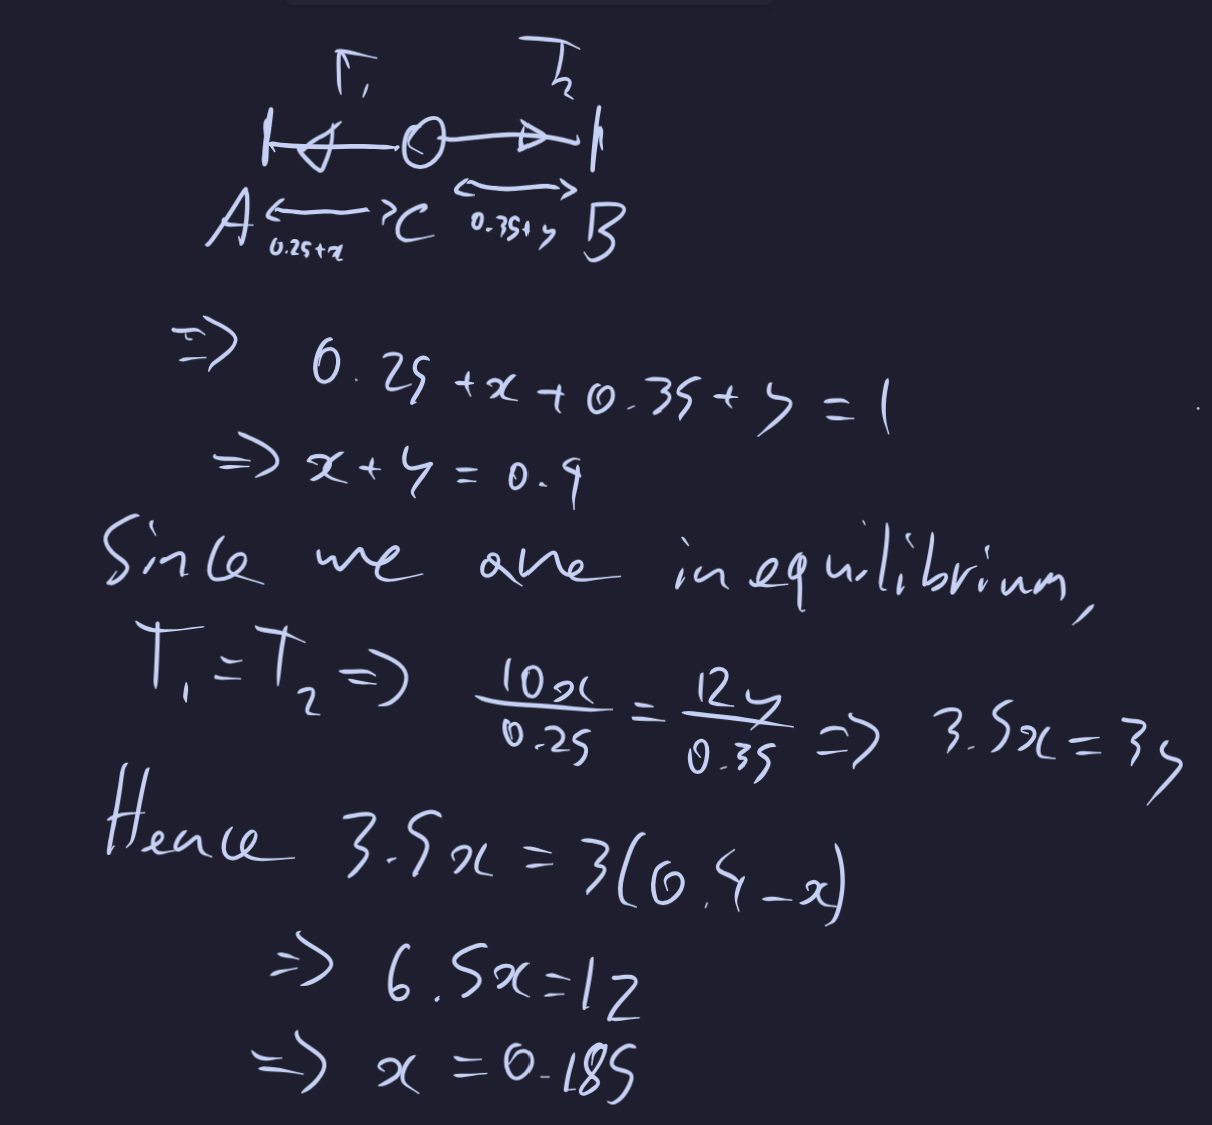 T₁ T₂
A C B
0.25+x 0.35+y
⇒ 0.25 + x + 0.35 + y = 1
⇒ x + y = 0.4
Since we are in equilibrium,
T₁ = T₂ ⇒ 10x/0.25 = 12y/0.35 ⇒ 3.5x = 3y
Hence 3.5x = 3(0.4 - x)
⇒ 6.5x = 12
⇒ x = 0.185